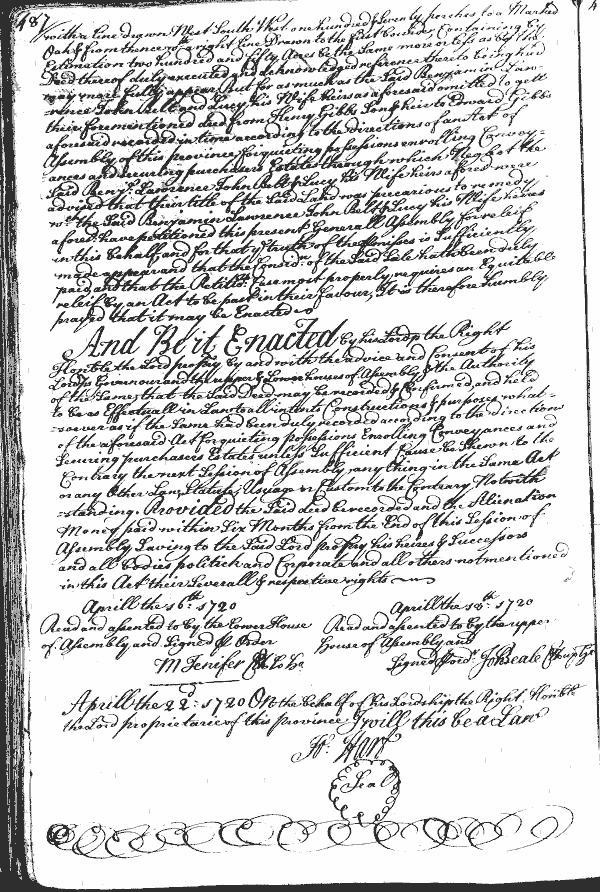 487
with a line drawn West South West one hundred & Seventy perches to a Marked
Oak & from thence wth a right line Drawn to the first bounder, Containing by
Estimation two hundred and fifty Acres be the Same more or less as by the
Deed thereof duly executed and acknowledged reference thereto being had
may more fully appear But for as much as the Said Benjamin Law-
rence John Bell and Lucy his Wife heirs as aforesaid omitted to gett
their forementioned deed from Henry Gibbs Son & heir to Edward Gibbs
aforesaid recorded in time according to the directions of an Act of
Assembly of this province for quieting possessions enrolling Convey-
ances and securing purchasers Estates through which Neglect the
Said Benjn. Lawrence John Bell & Lucy his Wife heirs afores were
advised that their title of the Said Land was precarious to remedy
wch. the Said Benjamin Lawrence John Bell & Lucy his Wife heires
afores. have petitioned this present Generall Assembly for releif
in this behalf and for that ye truth of the premises is Sufficiently
made appear and that the Consid'n. of the Said Sale hath been duly
paid and that the Petitrs. Case most properly requires an Equitable
releif by an Act to be past in their favour, It is therefore humbly
prayed that it may be Enacted
And Be it Enacted by his Lordsp the Right
Honble the Lord proptry by and with the advice and Consent of his
Lordsps Governour and the upper & Lower houses of Assembly & the Authority
of the Same, that the Said Deed may be recorded & Confirmed, and held
to be as Effectuall in Law to all intents Constructions & purposes what-
-soever as if the Same had been duly recorded according to the direction
of the aforesaid Act for quieting possessions Enrolling Conveyances and
Securing purchasers Estates unless Sufficient Cause be Shewn to the
Contrary the next Session of Assembly, any thing in the Same Act
or any Other Law, Statute, Usage or Custom to the Contrary Notwith
-standing. Provided the Said deed be recorded and the Alienation
Money paid within Six Months from the End of this Session of
Assembly Saving to the Said Lord proptry his heires & Successors
and all bodies politick and Corporate and all others not mentioned
in this Act their Severall & respective rights
Aprill the 16th. 1720
Read and assented to by the Lower House
of Assembly and Signed p Order
M Jenifer Cl Lo. Ho.
Aprill the 18th. 1720
Read and assented to by the upper
house of Assembly and
Signed p ord. Jo Beale
Aprill the 22d: 1720 On the behalf of his Lordship the Right Honble
the Lord proprietarie of this province I will this be a Law
Jo. Hart
Seal